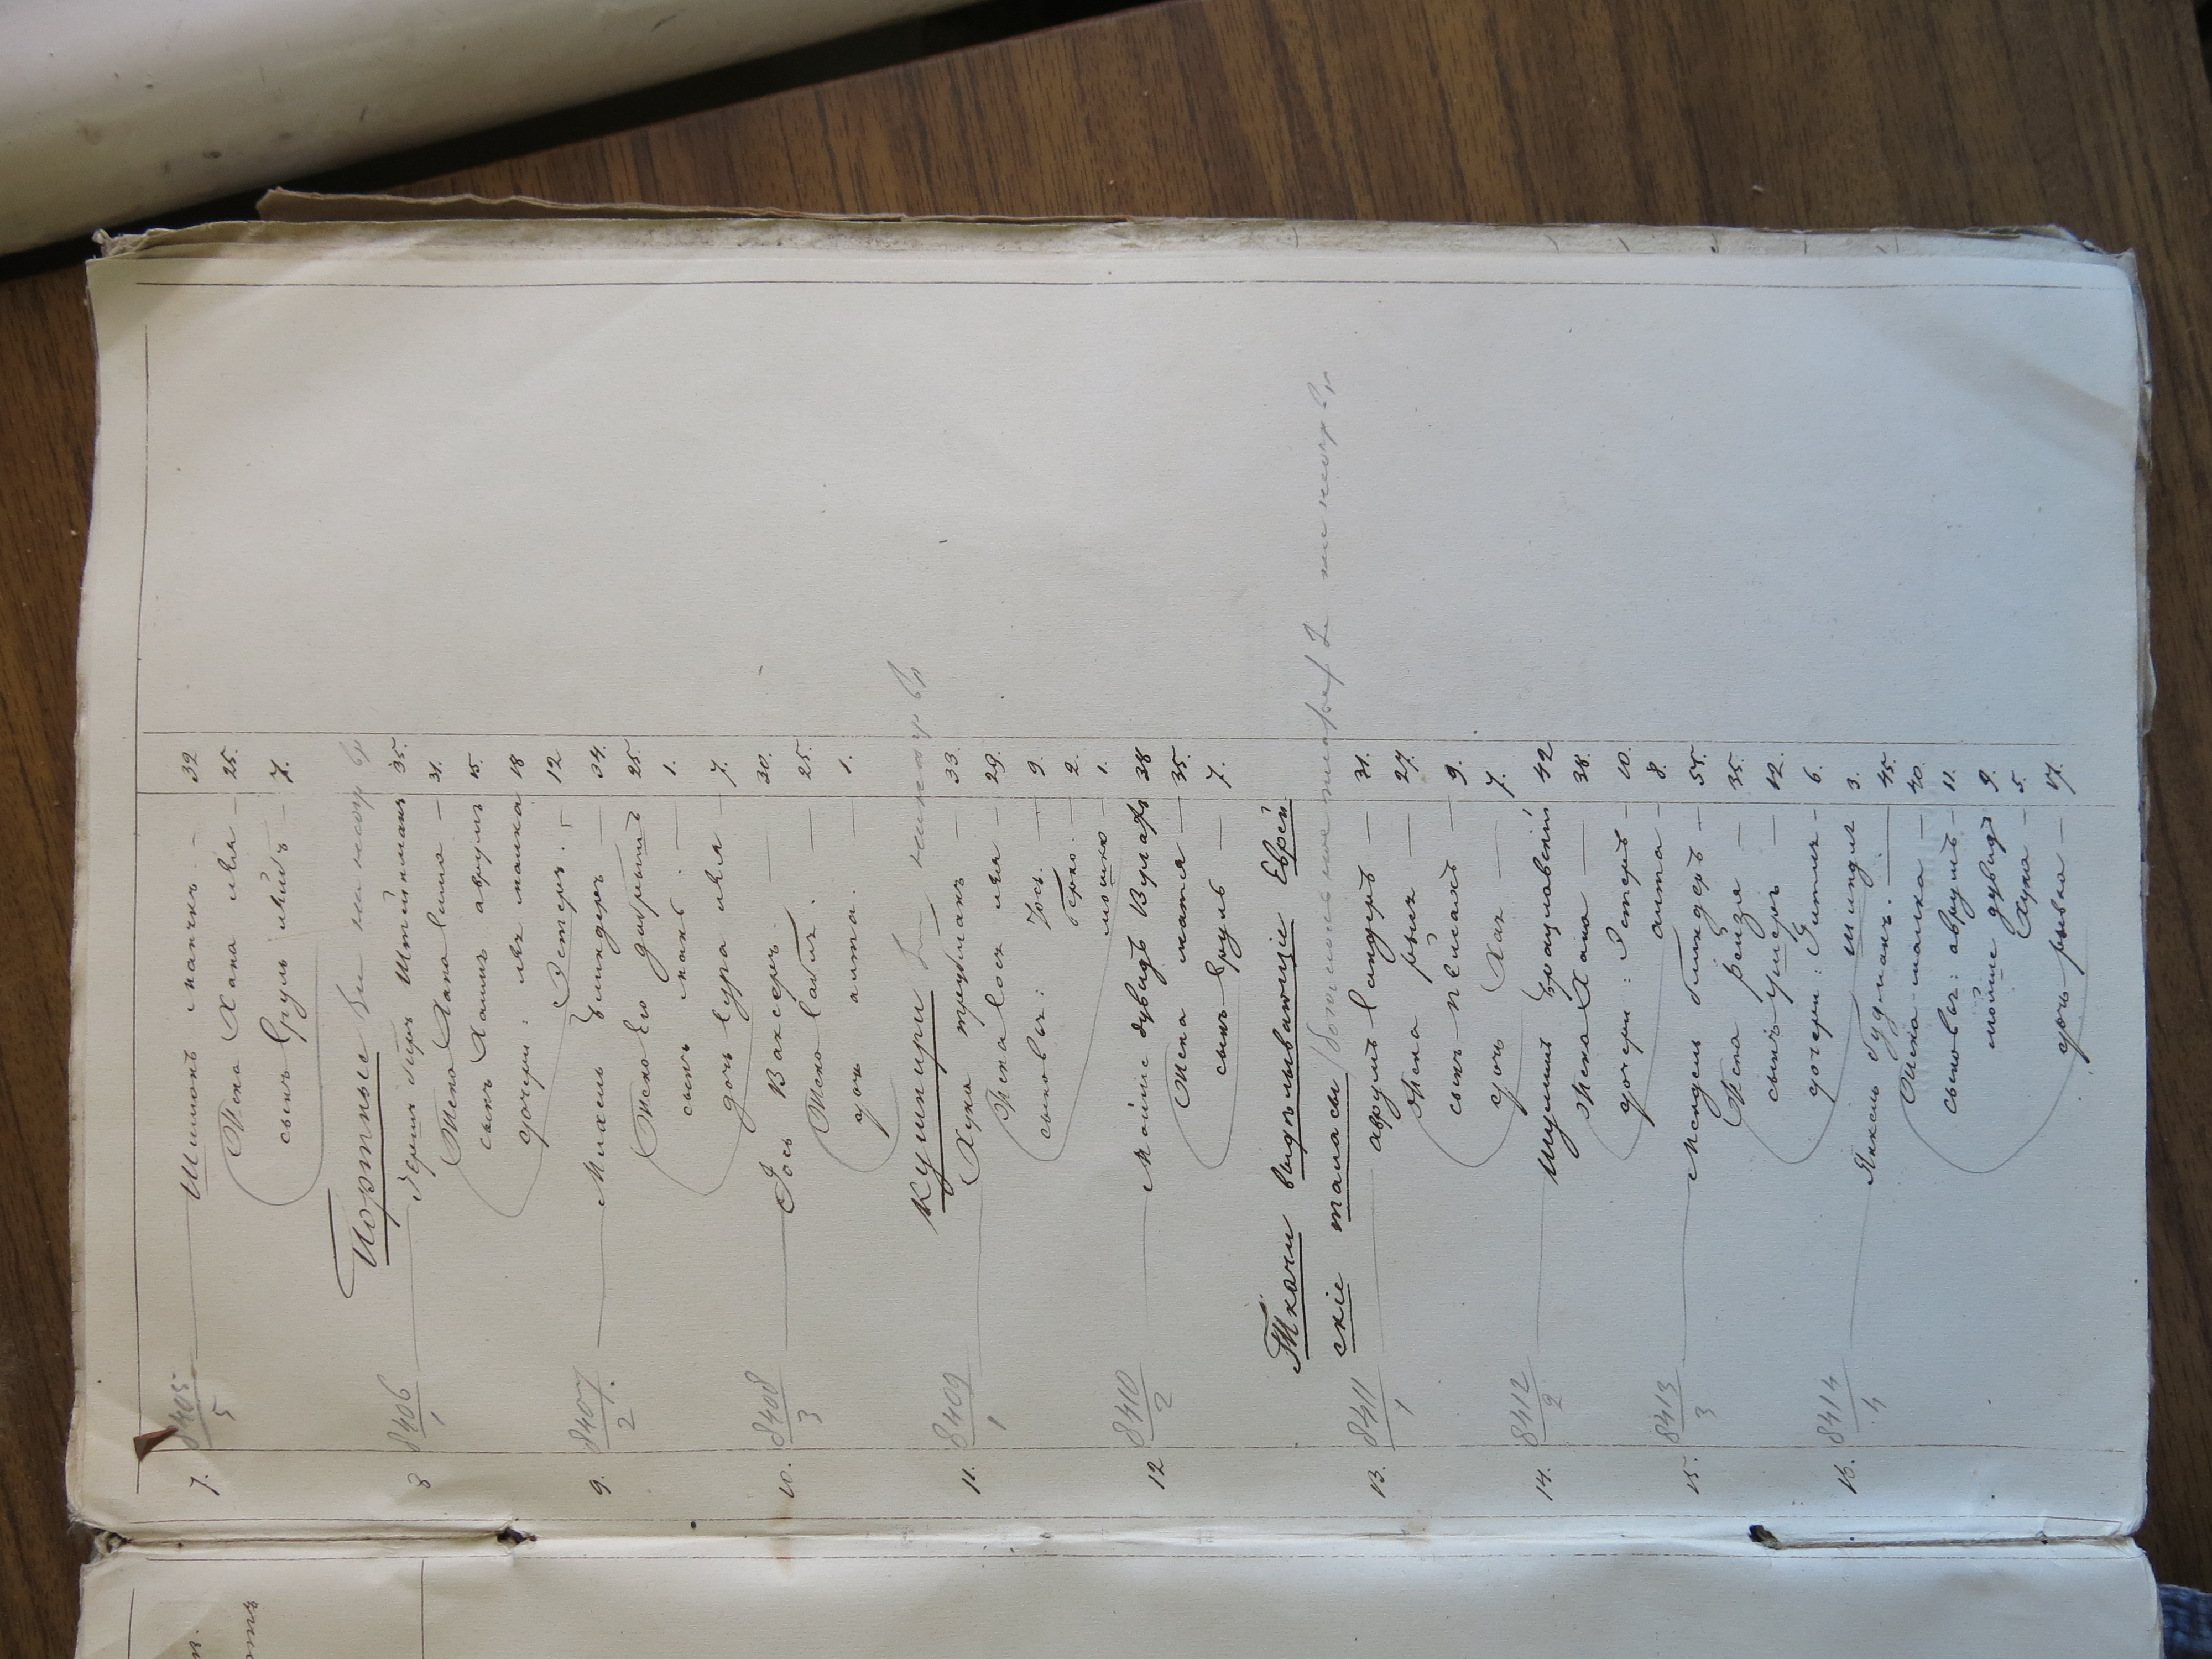 7. 8405/5 Шимонъ 32
Жена Хана лея — 25.
сынъ Сруль лейбъ — 7.
Портные
8 8406/1 Гершъ беръ Штейнманъ 35.
Жена Хана — 31.
сынъ Хаимъ аврумъ 15.
дочери: леа малка 18
Эстеръ. — 12
9. 8407/2 Михель Цимлеръ — 34.
Жена Ею добрышъ 25.
сынъ — 1.
дочь Сура лея — 7.
10. 8408/3 Іось Ваксеръ. — 30.
Жена — 25.
дочь алта. — 1.
Кушниры
11. 8409/1 Хуна трубманъ — 33.
Жена Бося лея — 29.
сыновья: Іось. — 9.
берко. — 2.
мошко — 1.
12 8410/2 Мойше дувидъ 38
Жена матля — 35.
сынъ Сруль — 7.
Ткачи выделывающіе Еврей
скіе таласы
13. 8411/1 аврумъ Сандеръ — 31.
Жена рыся — 27.
сынъ Пейсахъ — 9.
дочь Хая — 7.
14. 8412/2 Шулимъ Брацлавский 42
Жена Хана — 38.
дочери: Эстеръ — 10.
алта — 8.
15. 8413/3 Мендель блиндеръ — 55.
Жена рейзя — 35.
сынъ ушеръ — 12.
дочери: Гитля — 6.
шиндля 3.
16. 8414/4 Янкель Гудманъ. — 45.
Жена малка — 40.
сыновья: аврумъ — 11.
мойше дувидъ 9.
Хуна — 5.
дочь рывка — 17.